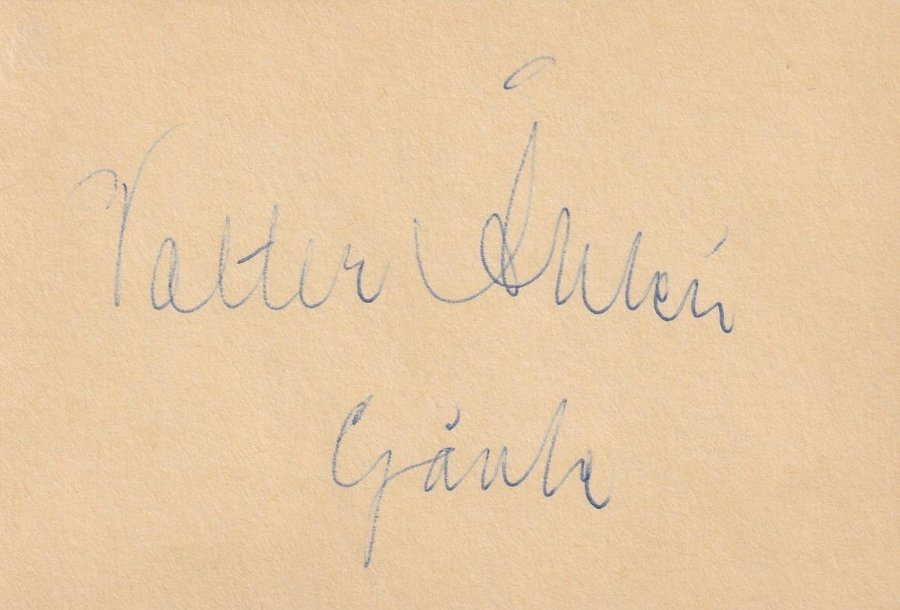 Valter Åhlén
Gävle